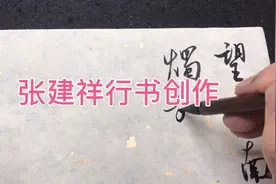 张建祥行书创作
望
烛
南